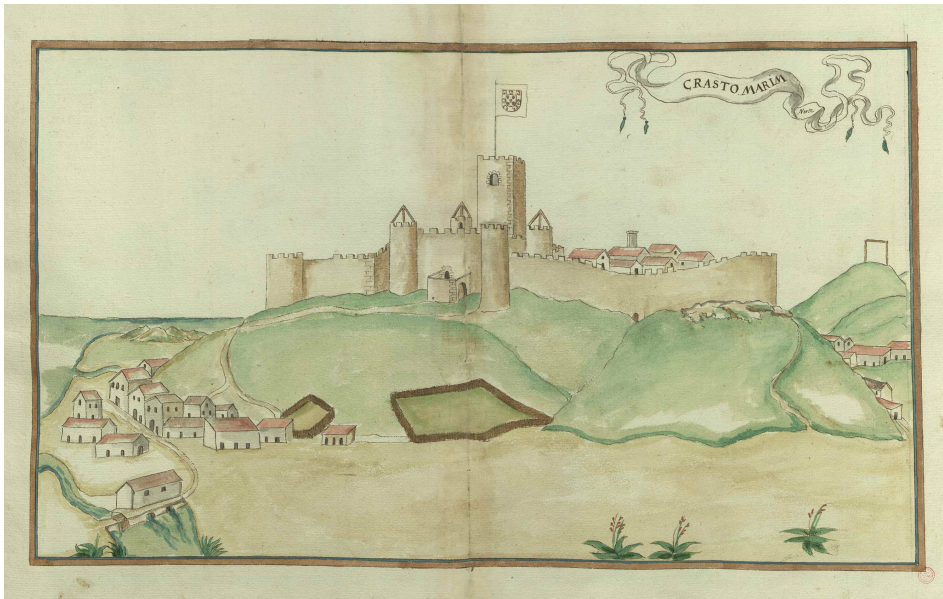 CRASTO MARIM
Norte